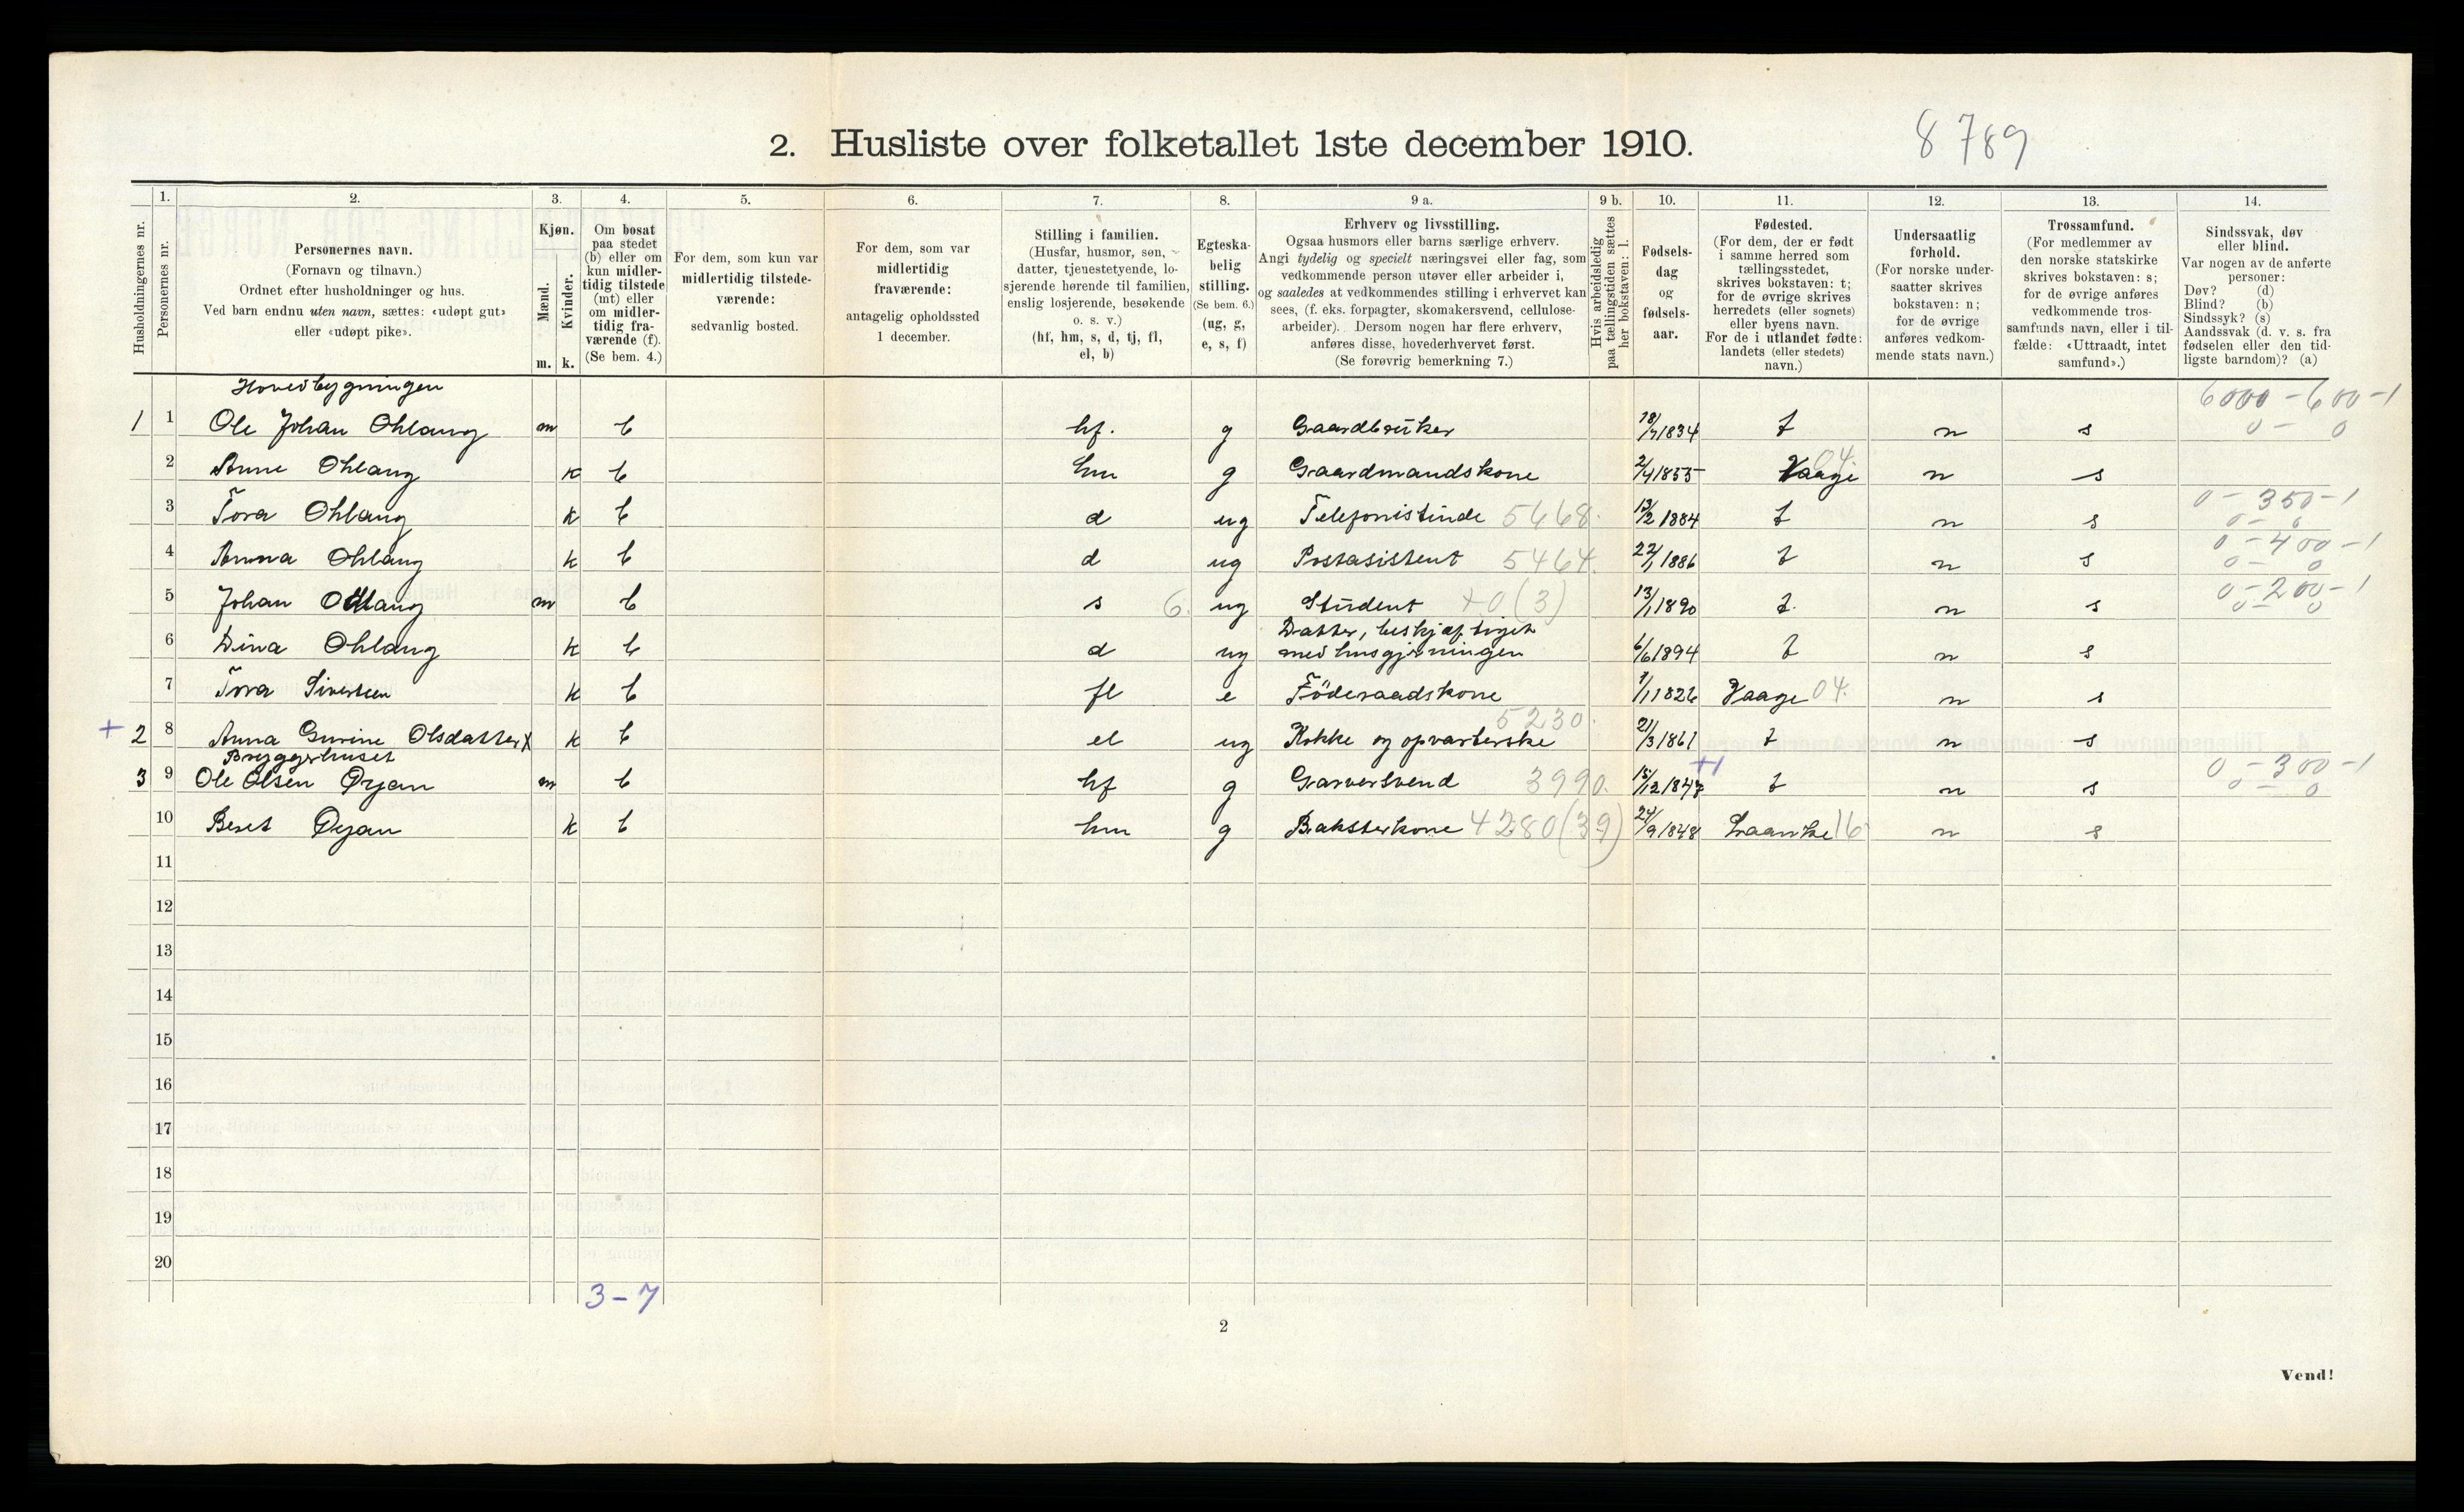 2. Husliste over folketallet 1ste december 1910.
8789
Husholdningernes nr.
1. Personernes nr.
2. Personernes navn. (Fornavn og tilnavn.) Ordnet efter husholdninger og hus. Ved barn endnu uten navn, sættes: «udøpt gut» eller «udøpt pike».
3. Kjøn. Mænd. m. Kvinder. k.
4. Om bosat paa stedet (b) eller om kun midlertidig tilstede (mt) eller om midlertidig fraværende (f). (Se bem. 4.)
5. For dem, som kun var midlertidig tilstedeværende: sedvanlig bosted.
6. For dem, som var midlertidig fraværende: antagelig opholdssted 1 december.
7. Stilling i familien. (Husfar, husmor, søn, datter, tjenestetyende, losjerende hørende til familien, enslig losjerende, besøkende o. s. v.) (hf, hm, s, d, tj, fl, el, b)
8. Egteskabelig stilling. (Se bem. 6.) (ug, g, e, s, f)
9 a. Erhverv og livsstilling. Ogsaa husmors eller barns særlige erhverv. Angi tydelig og specielt næringsvei eller fag, som vedkommende person utøver eller arbeider i, og saaledes at vedkommendes stilling i erhvervet kan sees, (f. eks. forpagter, skomakersvend, cellulosearbeider). Dersom nogen har flere erhverv, anføres disse, hovederhvervet først. (Se forøvrig bemerkning 7.)
9 b. Hvis arbeidsledig paa tællingstiden sættes her bokstaven: l.
10. Fødselsdag og fødselsaar.
11. Fødested. (For dem, der er født i samme herred som tællingsstedet, skrives bokstaven: t; for de øvrige skrives herredets (eller sognets) eller byens navn. For de i utlandet fødte: landets (eller stedets) navn.)
12. Undersaatlig forhold. (For norske undersaatter skrives bokstaven: n; for de øvrige anføres vedkommende stats navn.)
13. Trossamfund. (For medlemmer av den norske statskirke skrives bokstaven: s; for de øvrige anføres vedkommende trossamfunds navn, eller i tilfælde: «Uttraadt, intet samfund».)
14. Sindssvak, døv eller blind. Var nogen av de anførte personer: Døv? (d) Blind? (b) Sindssyk? (s) Aandssvak (d. v. s. fra fødselen eller den tidligste barndom)? (a)
Hovedbygningen
6000 - 600 - 1
1 1 Ole Johan Ohlang m b hf. g Gaardbruker 18/7 1834 t n s 0 - 0
2 Anne Ohlang k b hm g Gaardmandskone 2/4 1855 Vaage 04 n s
3 Tora Ohlang k b d ug Telefonistinde 5468. 13/2 1884 t n s 0 - 350 - 1 0 - 0
4 Anna Ohlang k b d ug Postasistent 5464. 22/1 1886 t n s 0 - 400 - 1 0 - 0
5 Johan Ohlang m b s 6. ug Student +0 (3) 13/1 1890 t. n s 0 - 200 - 1 0 - 0
Datter, beskjæftiget
6 Dina Ohlang k b d ug med husgjerningen 6/6 1894 t n s
7 Tora Sivertsen k b fl e Föderaadskone 1/1 1826 Vaage 04. n s
+ 2 8 Anna Gurine Olsdatter X k b el ug Kokke og opvarterske 5230. 21/3 1861 t n s
Bryggerhuset
3 9 Ole Olsen Øyan m b hf g Garversvend 3990. 15/12 1847 +1 t n s 0 - 300 - 1 0 - 0
10 Beret Øyan k b hm g Baksterkone 4280 (39) 24/9 1848 Laanke 16 n s
11
12
13
14
15
16
17
18
19
20
3 - 7
2
Vend!